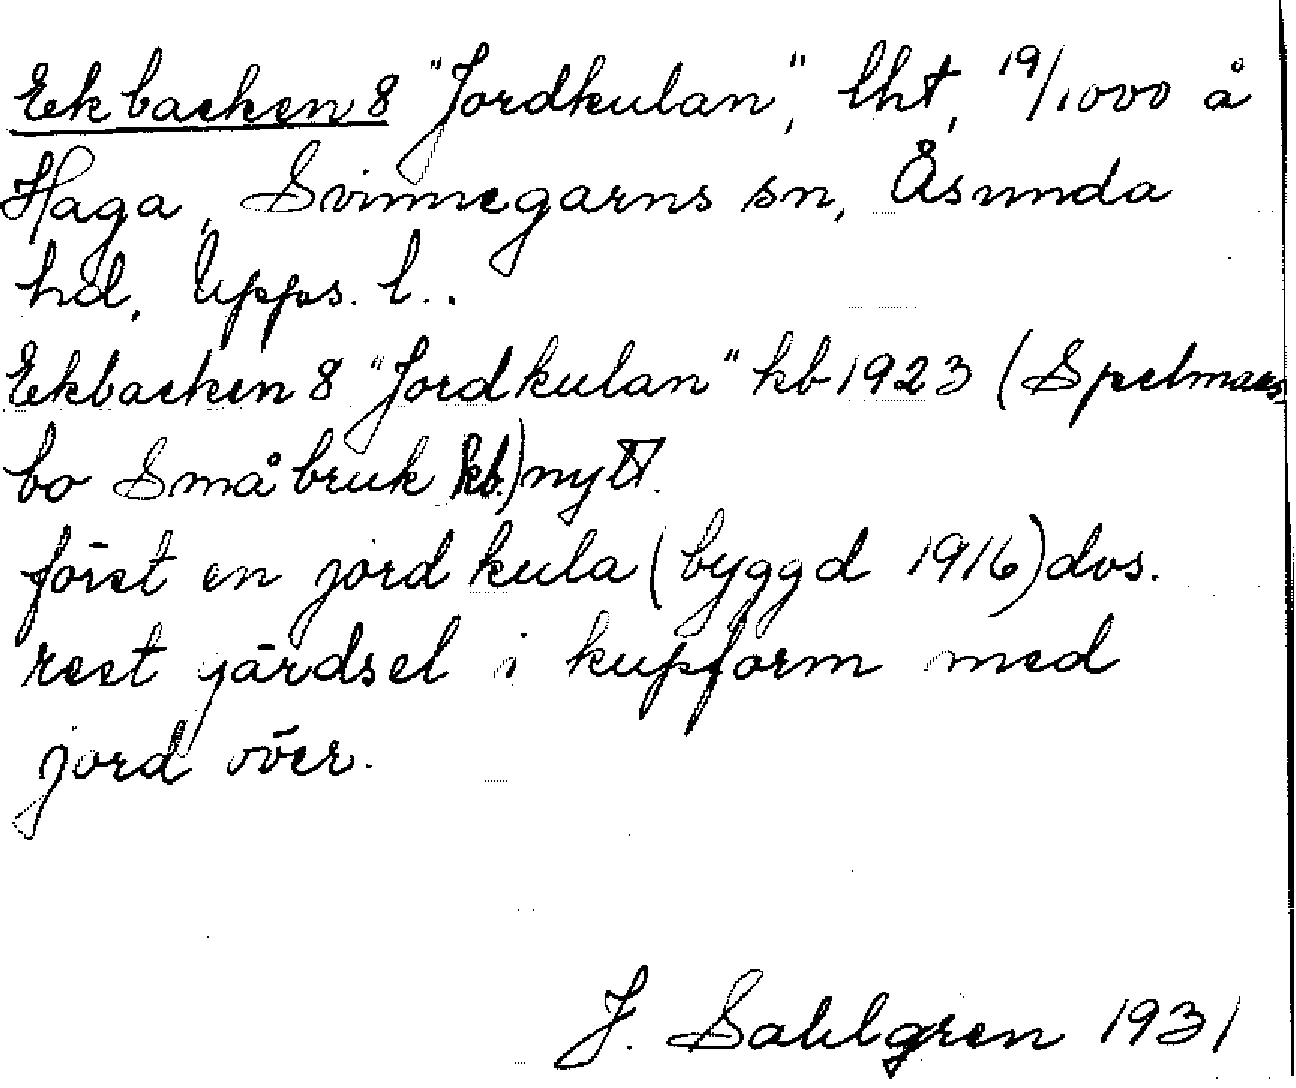 Ekbacken 8 "Jordkulan", lht, 19/1000 å
Haga, Svinnegarns sn, Åsunda
hd, Upps. l..
Ekbacken 8 "Jordkulan" kb 1923 (Spelmans-
bo Småbruk kb.) nytt.
först en jordkula (byggd 1916) dvs.
rest gärdsel i kupform med
jord över.
J. Sahlgren 1931